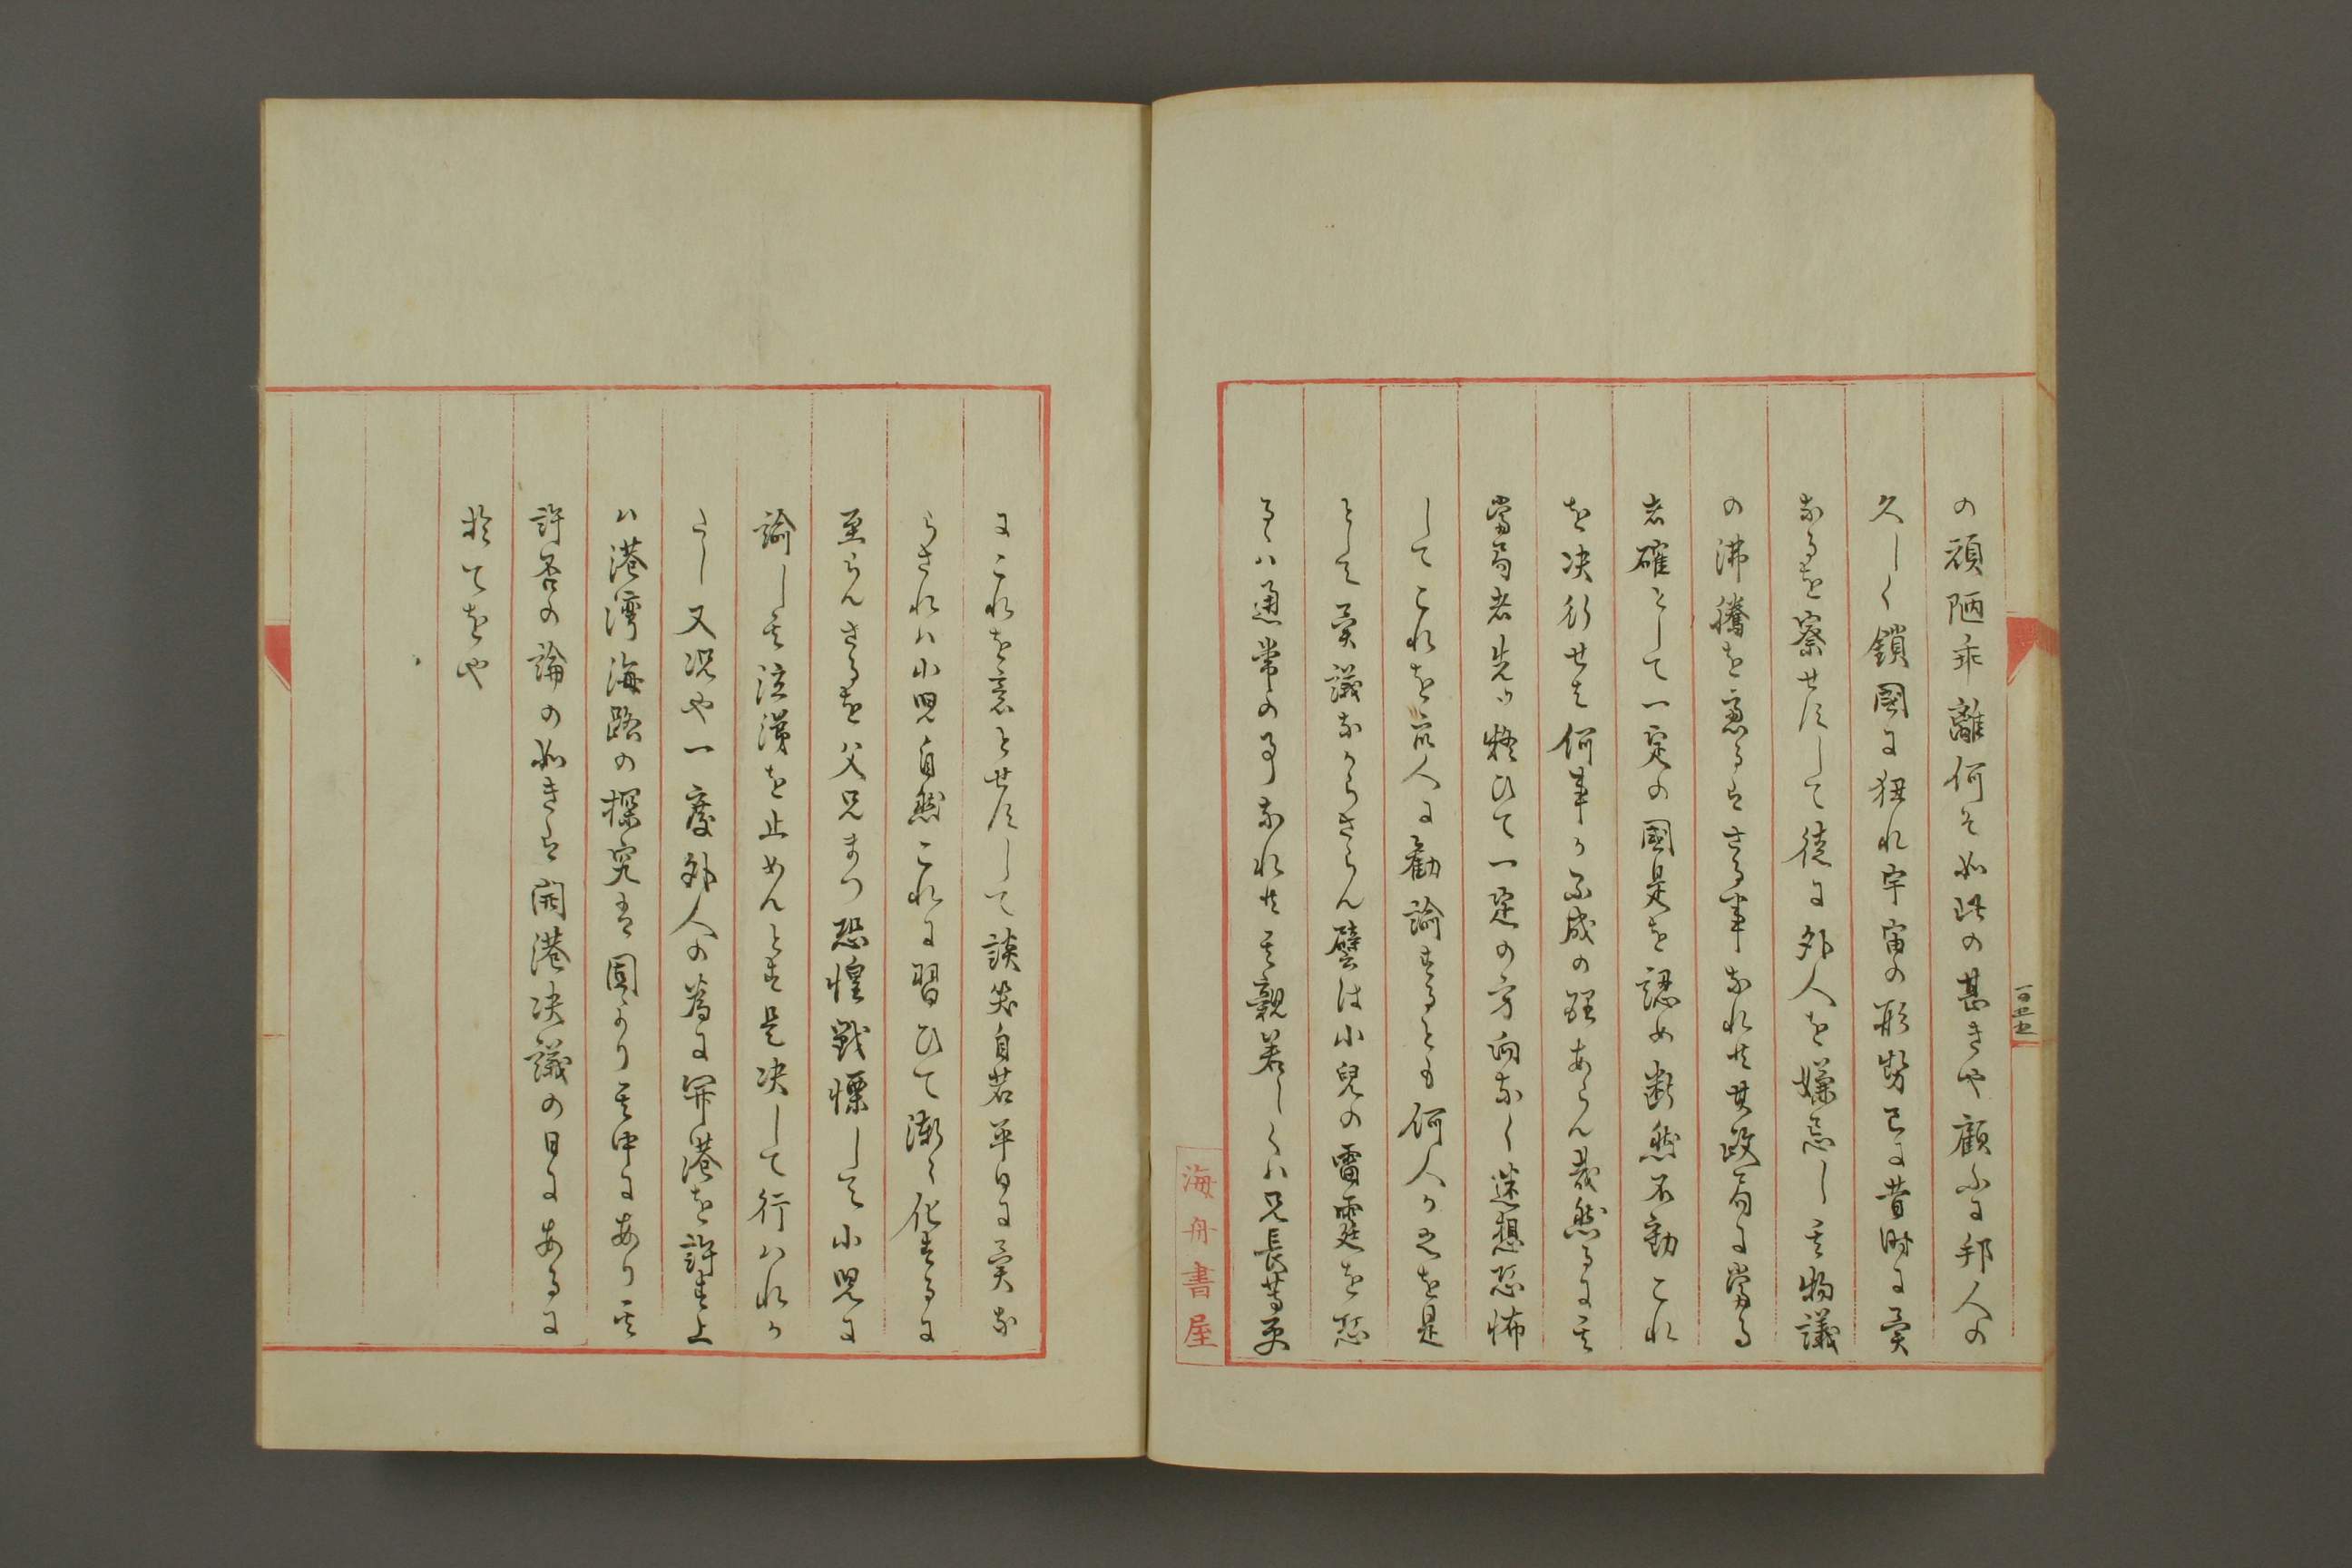 の頑陋乖離何そ如此の甚きや顧ふに邦人の
久しく鎖國に狃れ宇宙の形勢已に昔時に異
なるを察せすして徒に外人を嫌忌し其物議
の沸騰を慮るはさる事なれ共其政局に當る
者確として一定の國是を認め断然不動これ
を决行せは何事か不成の理あらん哉然るに其
當局者先ツ疑ひて一定の方向なく迷想恐怖
してこれを衆人に勸諭するとも何人か之を是
として異議なからさらん譬は小兒の雷霆を恐
るゝハ通常の事なれ共其親若しくハ兄長等更
にこれを意とせすして談笑自若平日に異な
らされハ小児自然これに習ひて漸く化するに
至らんさるを父兄まつ恐惶戰慄して小児に
諭し其泣涕を止めんとす是决して行ハれか
たし又况や一度外人の為に開港を許す上
ハ港湾海路の探究は固より其中にあり其
許否の論の如きは開港决議の日にあるに
於てをや
百五十五
海舟書屋